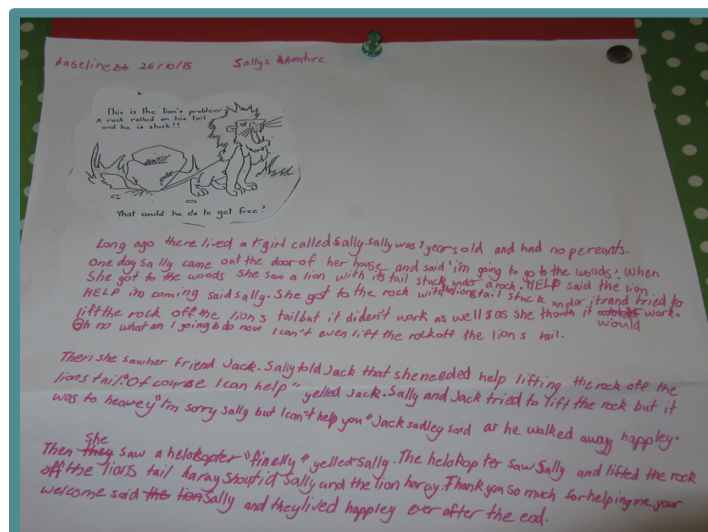 baseline 26/10/15 Sallys Adventure
This is the lion's problem!
A rock rolled on his tail
and he is stuck!!
What could he do to get free?
Long ago there lived a girl called Sally. Sally was 7 years old and had no pereants.
One day Sally came out the door of her house and said "i'm going to go to the woods". When
She got to the woods She saw a lion with its tail stuck under a rock. HELP said the lion.
HELP im coming said sally. She got to the rock with the lions tail stuck under it and tried to
lift the rock off the lion s tail but it dident work as well as she thouth it would work.
Oh no what am I going to do now I can't even lift the rock off the lion s tail.
Then she saw her friend Jack. Sally told Jack that she needed help lifting the rock off the
lions tail. "Of course I can help" yelled Jack. Sally and Jack tried to lift the rock but it
was to heavey "I'm sorry sally but I can't help you" Jack sadley said as he walked away happley.
Then she saw a helokopter "finelly" yelled Sally. The helokopter saw Sally and lifted the rock
off the lions tail haray shoutid Sally and the lion horay. Thank you so much for helping me your
welcome said Sally and they lived happley ever after the end.